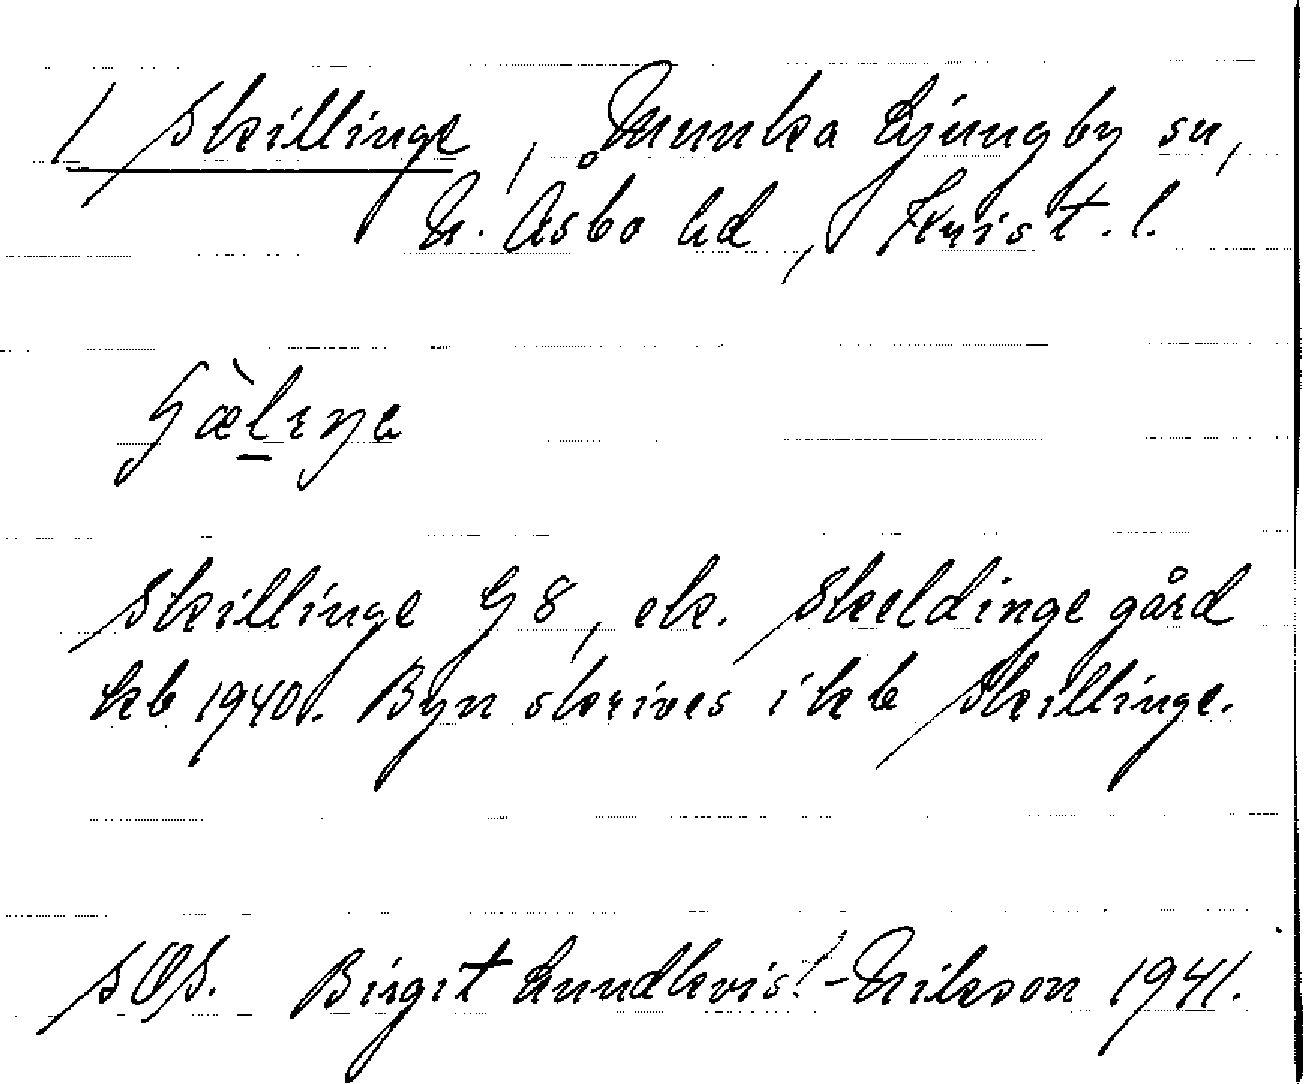 1 Skillinge, Munka Ljungby sn,
N. Åsbo hd, Krist. l.
Skillinge G 8, ek. Skeldinge gård
kb 1940. Byn skrives i kb Skillinge.
SOS. Birgit Lundkvist-Nilsson 1941.